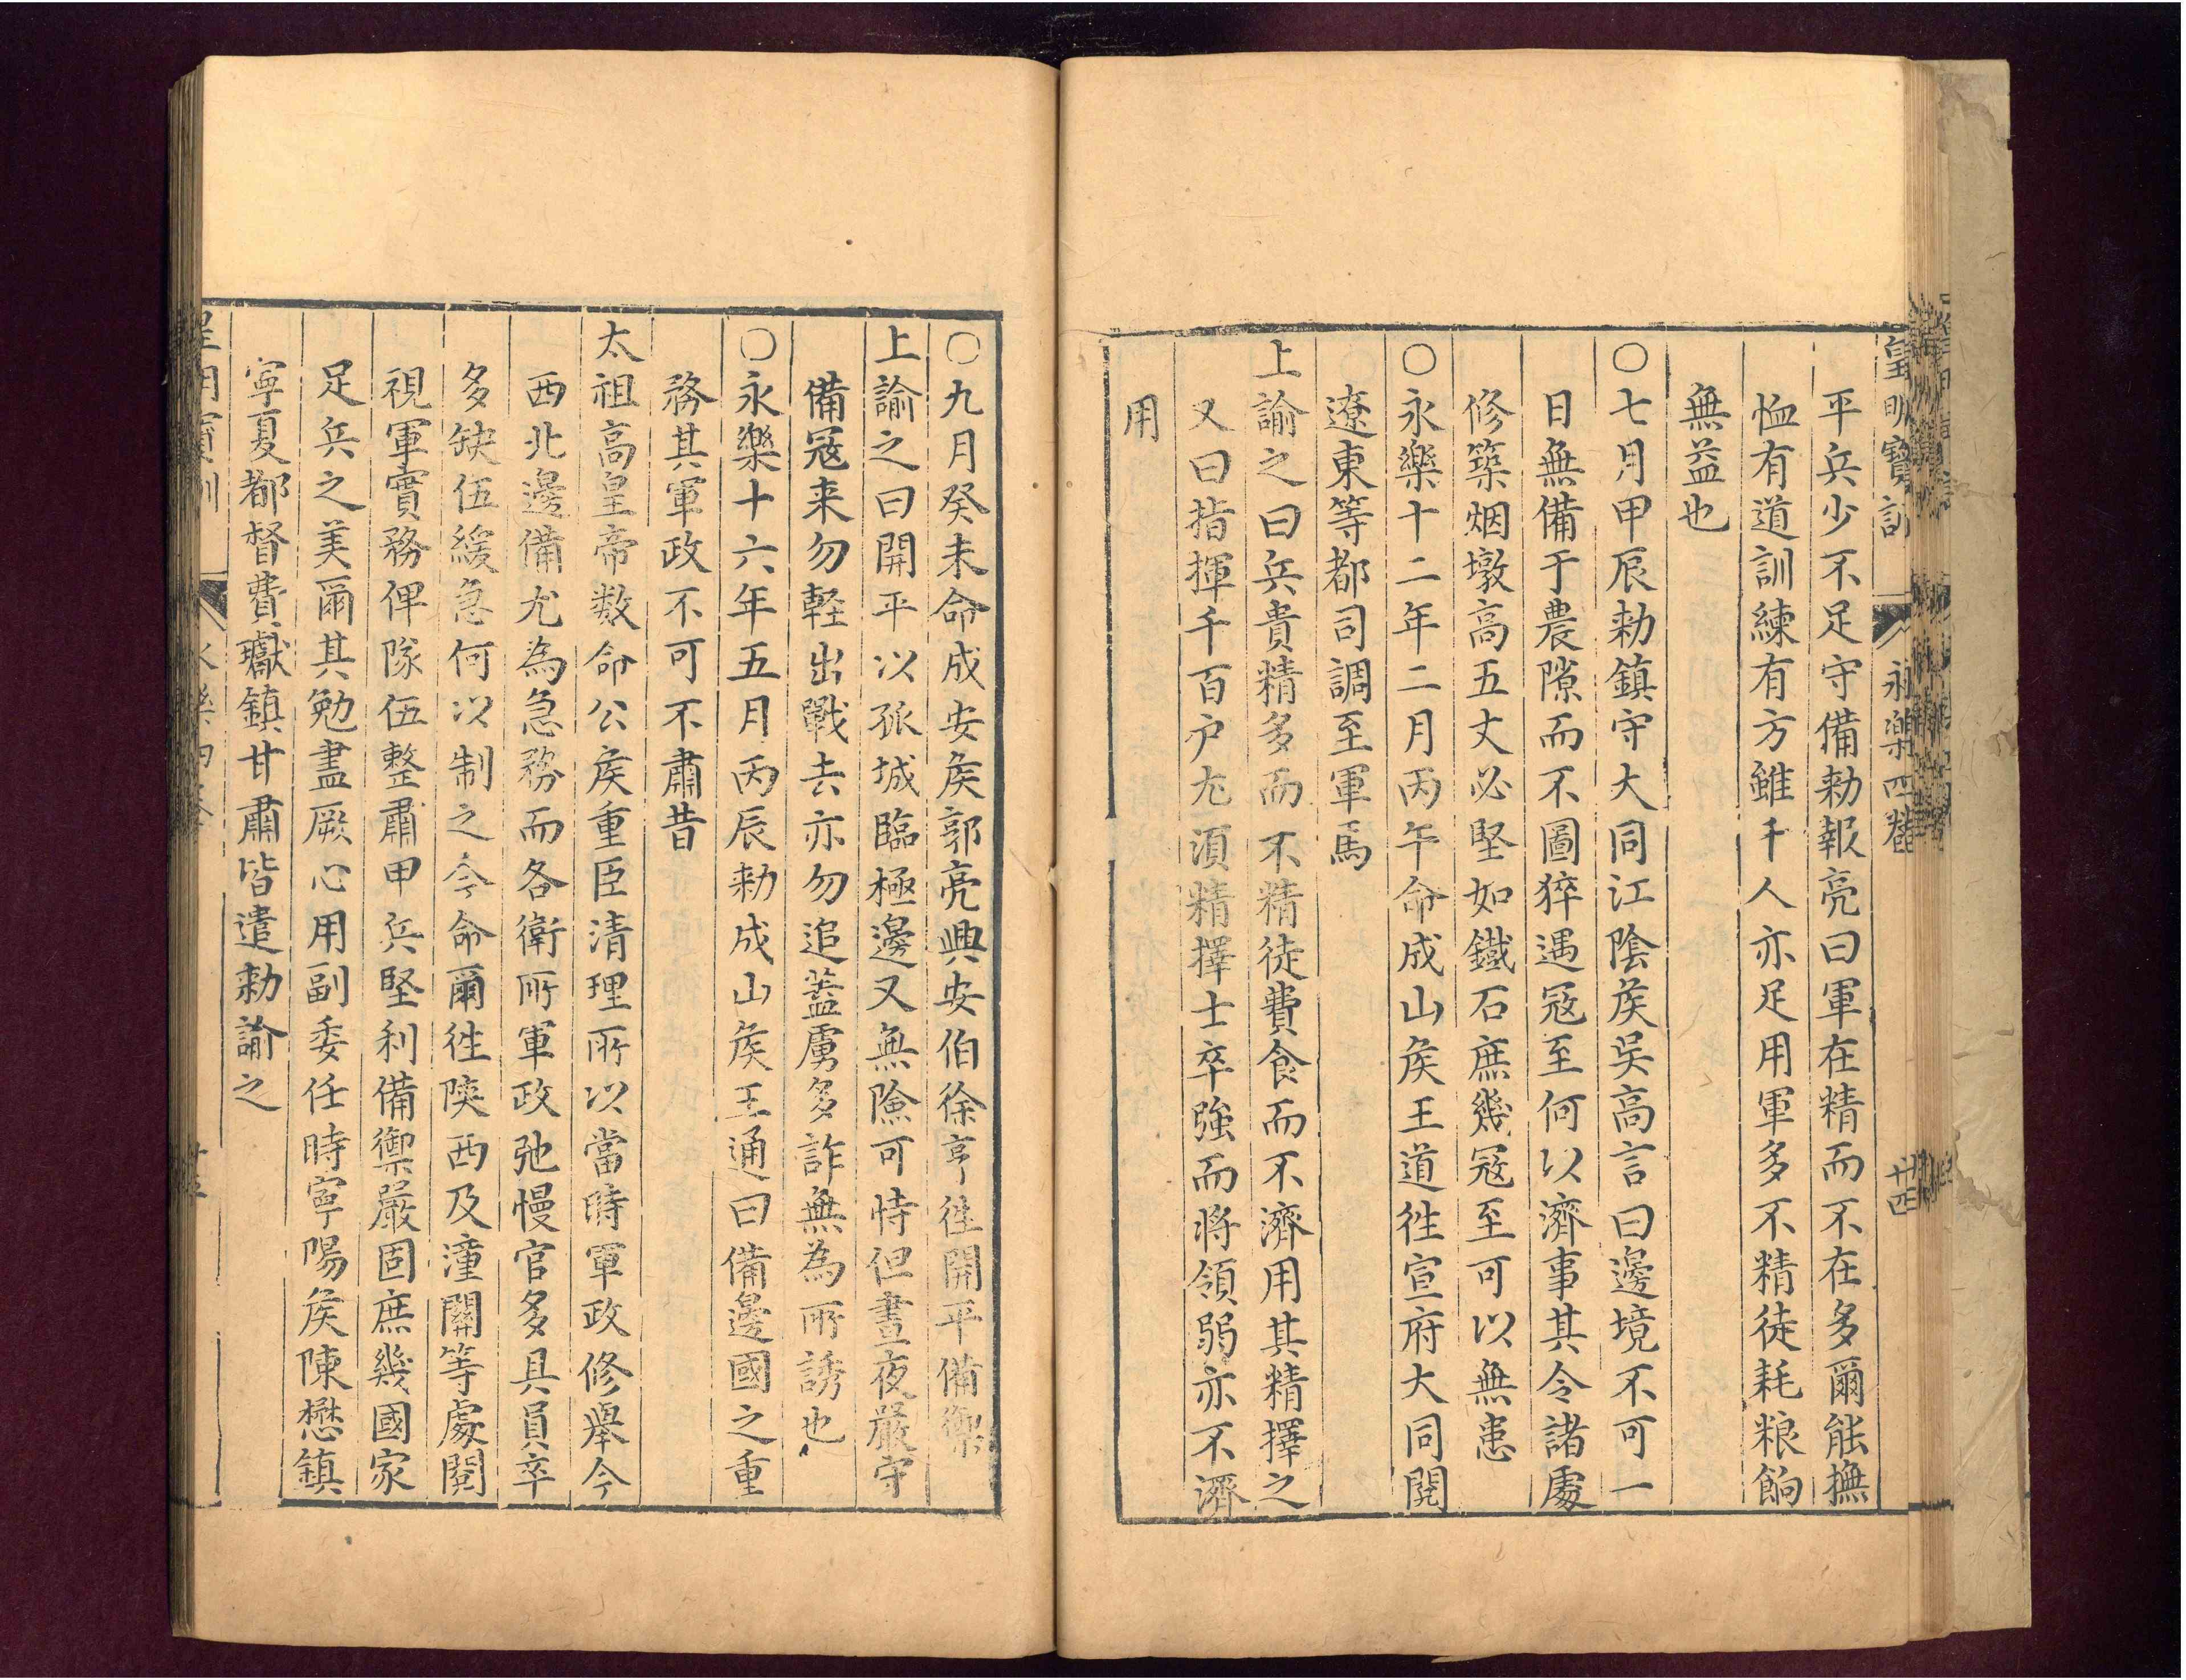 皇明寶訓 永樂四卷 廿四
平兵少不足守備勑報亮曰軍在精而不在多爾能撫
恤有道訓練有方雖千人亦足用軍多不精徒耗粮餉
無益也
○七月甲辰勑鎮守大同江陰侯吳高言曰邊境不可一
日無備于農隙而不圖猝遇冦至何以濟事其令諸處
修築烟墩高五丈必堅如鐵石庶幾冦至可以無患
○永樂十二年二月丙午命成山侯王道徃宣府大同開
遼東等都司調至軍馬
上諭之曰兵貴精多而不精徒費食而不濟用其精擇之
又曰指揮千百户尤湏精擇士卒強而將領弱亦不濟
用
○九月癸未命成安侯郭亮興安伯徐亨徃開平備禦
上諭之曰開平以孤城臨極邊又無險可恃但晝夜嚴守
備冦来勿軽出戰去亦勿追蓋虜多詐無為所誘也
○永樂十六年五月丙辰勑成山侯王通曰備邊國之重
務其軍政不可不肅昔
太祖高皇帝数命公侯重臣清理所以當時軍政修舉今
西北邊備尤為急務而各衛所軍政弛慢官多具員卒
多缺伍緩急何以制之今命爾徃陝西及潼關等處閱
視軍實務俾隊伍整肅甲兵堅利備禦嚴固庶幾國家
足兵之美爾其勉盡厥心用副委任時寧陽侯陳懋鎮
寧夏都督費瓛鎮甘肅皆遣勑諭之
皇明寶訓 永樂四卷 廿五